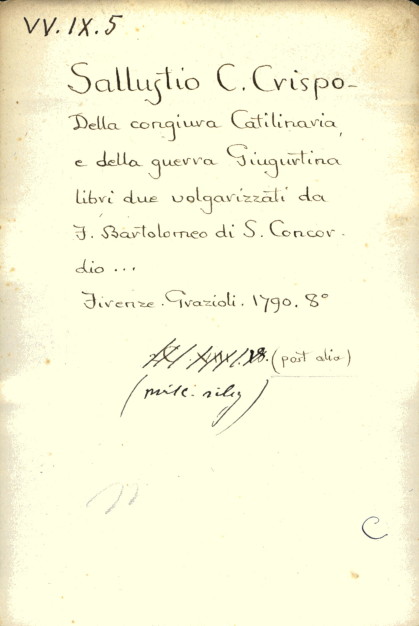 VV.IX.5
Sallustio C. Crispo-
Della congiura Catilinaria,
e della guerra Giugurtina
libri due volgarizzati da
F. Bartolomeo di S. Concor-
dio ...
Firenze. Grazioli. 1790. 8°
(post alia)
C